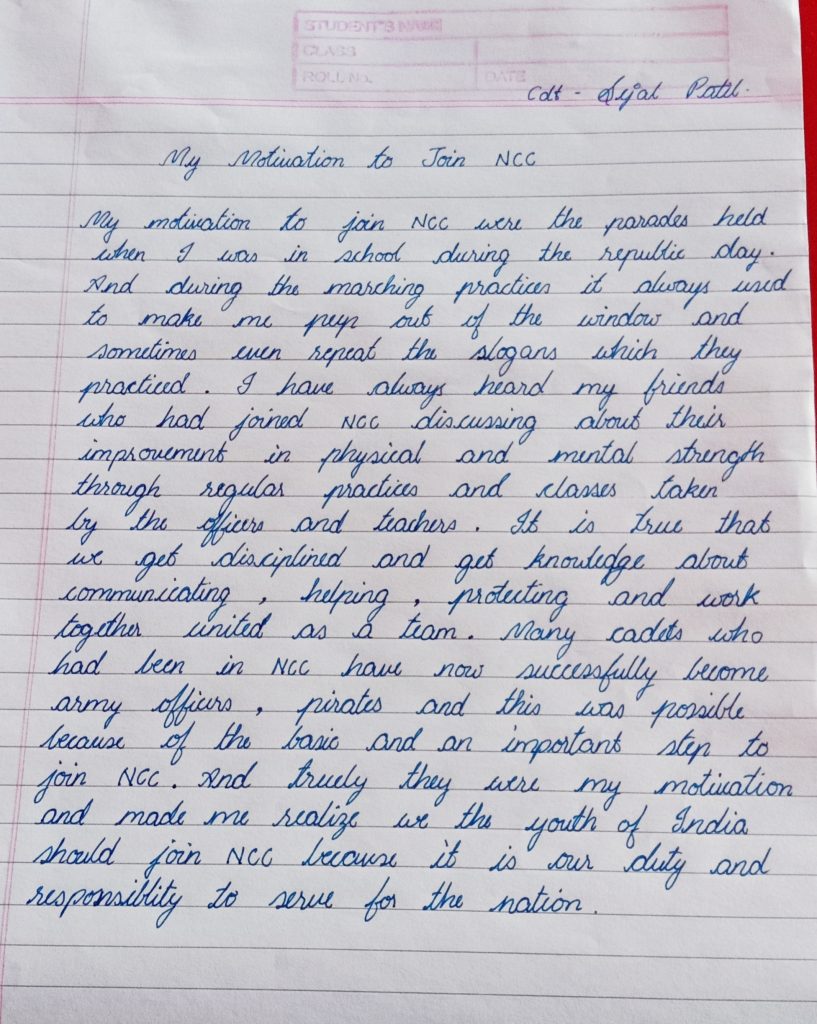 STUDENT'S NAME
CLASS
ROLL No. DATE
Cdt - Sejal Patil.
My Motivation to Join NCC
My motivation to join NCC were the parades held
when I was in school during the republic day.
And during the marching practices it always used
to make me peep out of the window and
sometimes even repeat the slogans which they
practiced. I have always heard my friends
who had joined NCC discussing about their
improvement in physical and mental strength
through regular practices and classes taken
by the officers and teachers. It is true that
we get disciplined and get knowledge about
communicating, helping, protecting and work
together united as a team. Many cadets who
had been in NCC have now successfully become
army officers, pirates and this was possible
because of the basic and an important step to
join NCC. And truely they were my motivation
and made me realize we the youth of India
should join NCC because it is our duty and
responsiblity to serve for the nation.